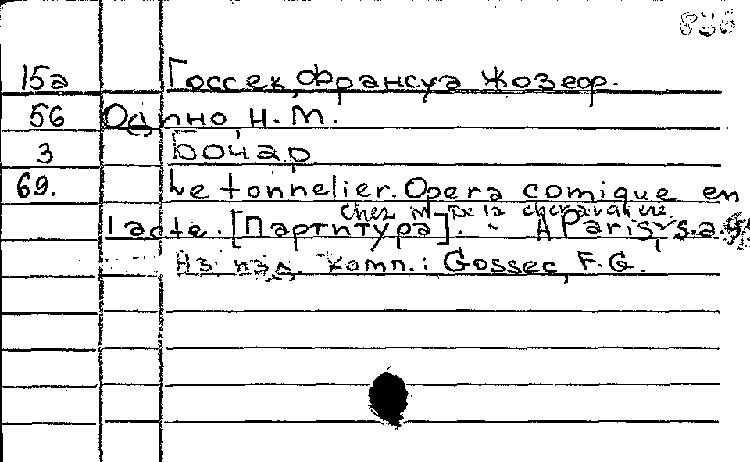 836
15а Госсек, Франсуа Жозеф.
56 Одино, Н.М.
3 Бочар
69. Le tonnelier. Opera comique en
chez M De la chevardiere
1 acte. [Партитура]. - A Paris, s.a.
Аз. изд. комп.: Gossec, F.G.